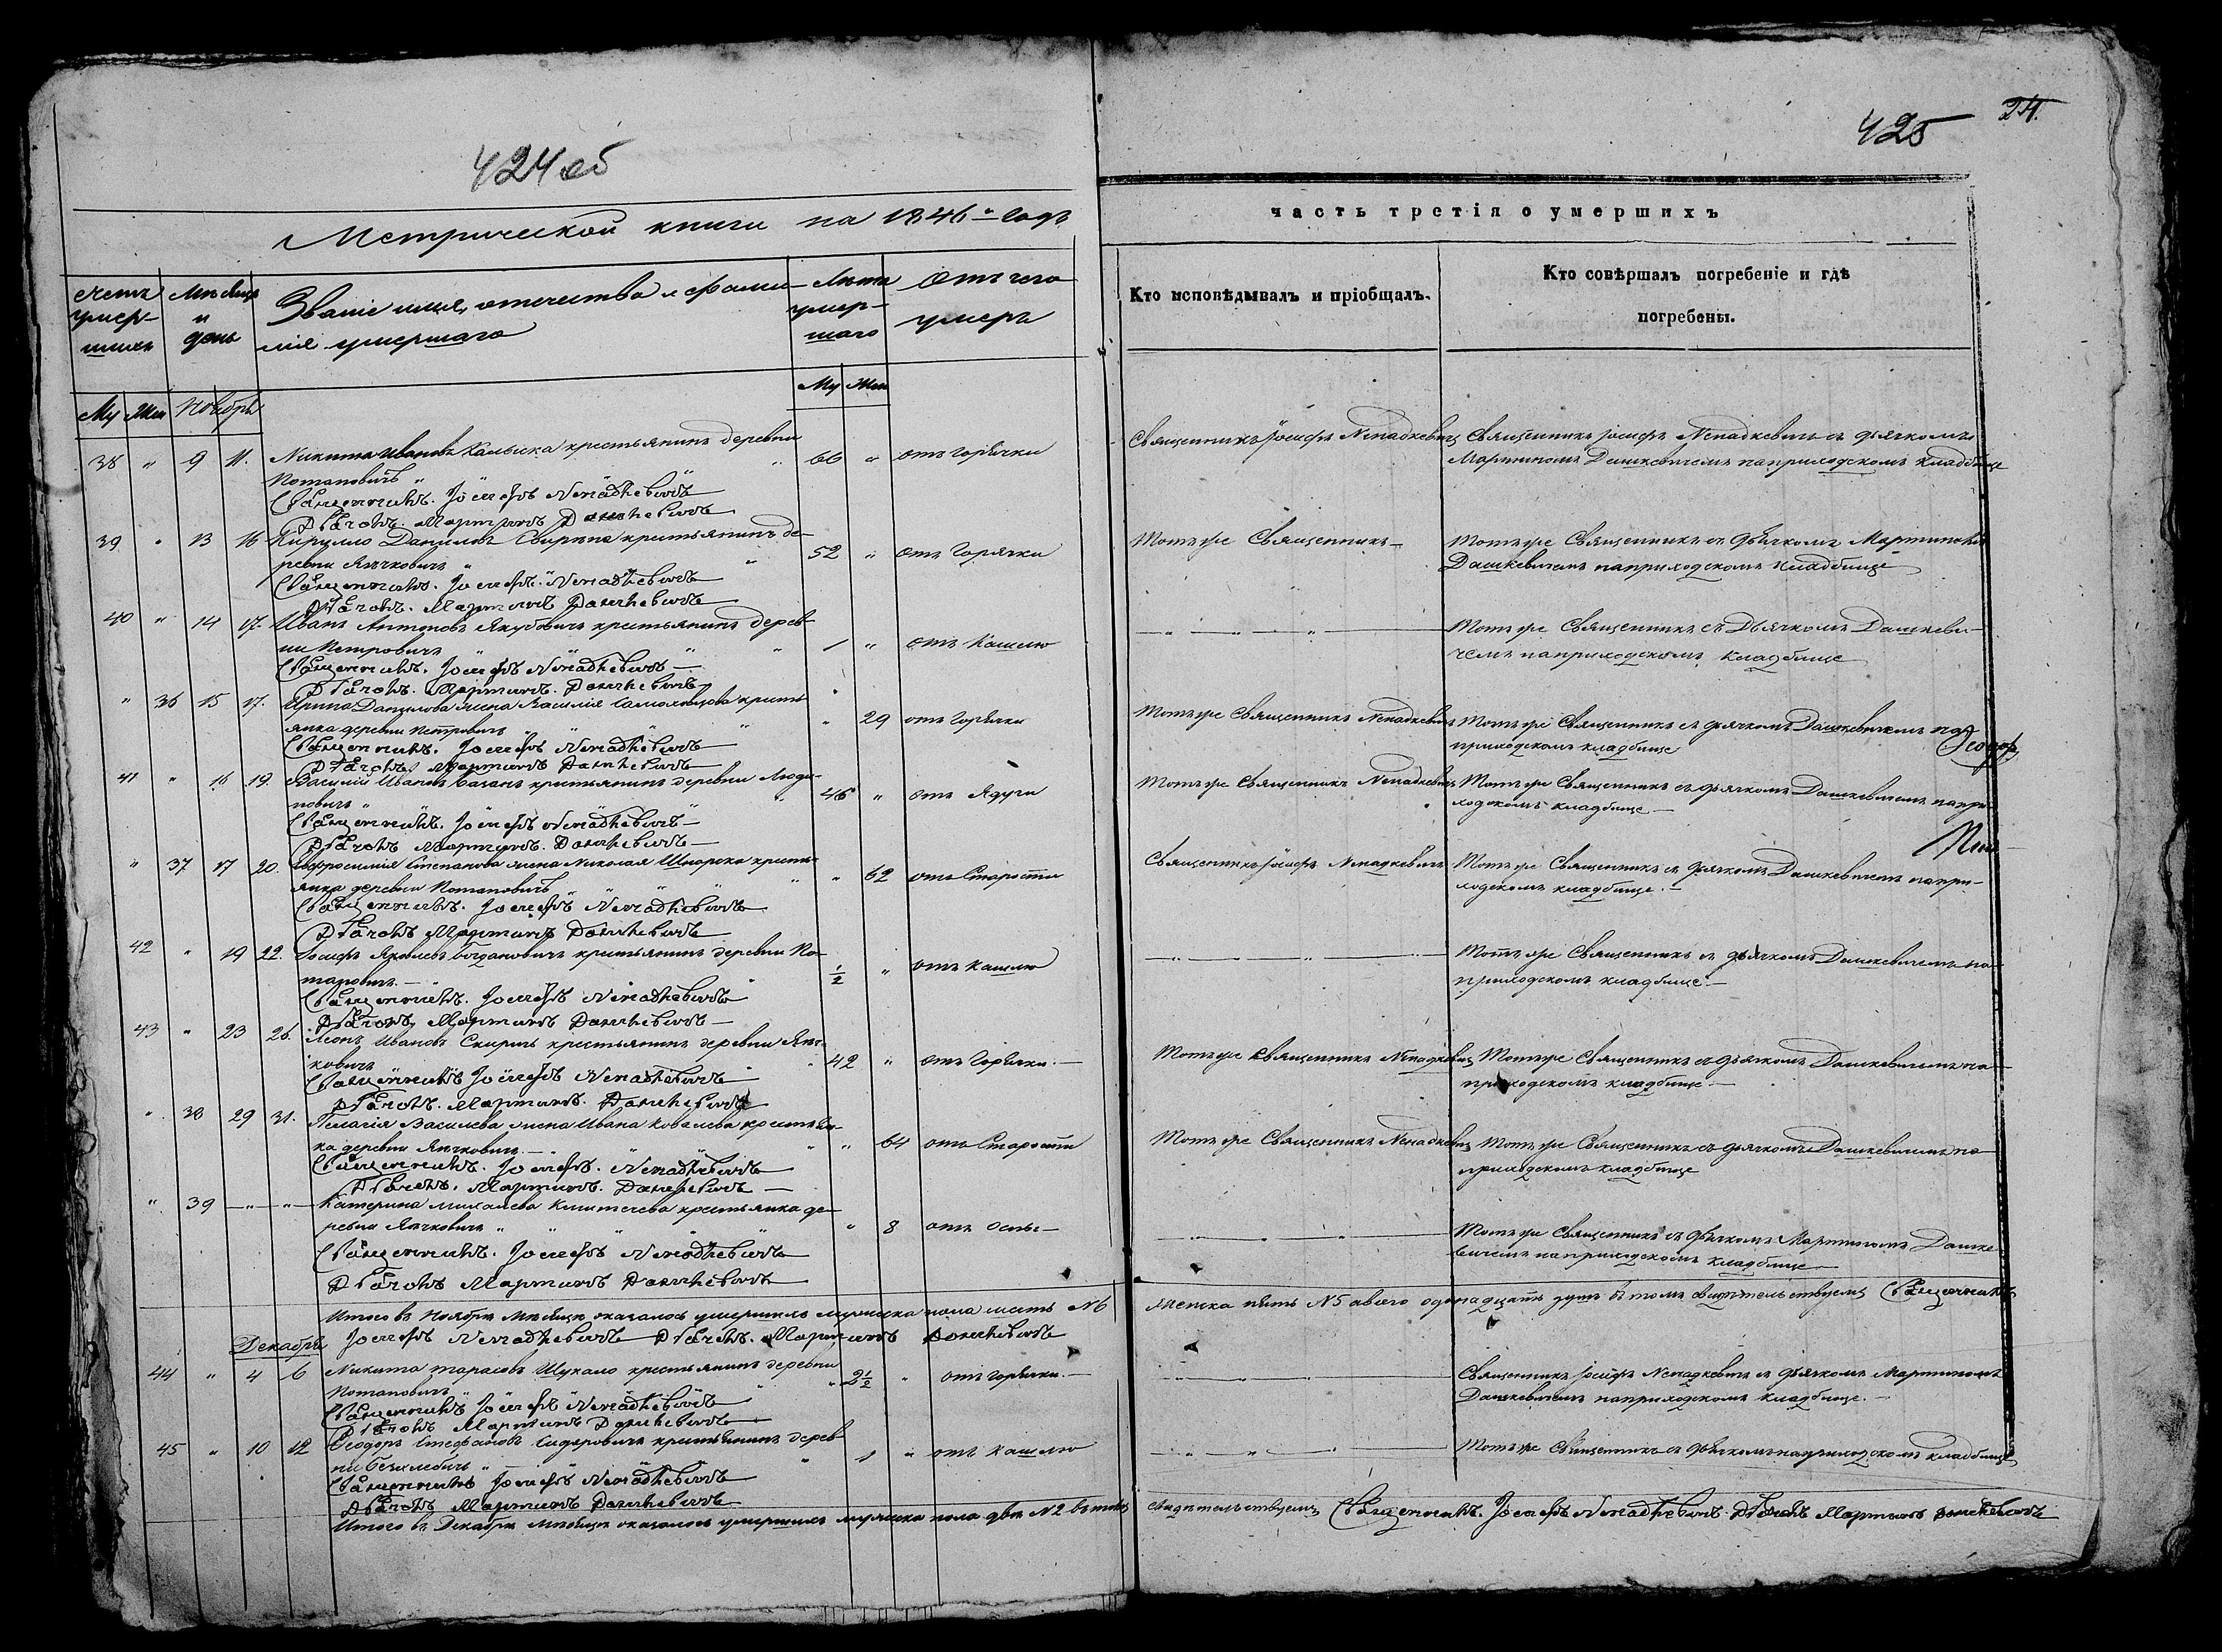 424 об
Метрической книги на 1846 годъ
Счетъ умер-
шихъ
Мѣсяцъ
и
день
Званіе имя, отчество и фами-
лія умершаго
Лѣта
умер-
шаго
Отъ чего
умеръ
Му Жен Ноябрь
Му Жен
38 " 9 11. Никита Ивановъ крестьянинъ деревни 66 " отъ горячки
Потаповичъ "
Священникъ. Іосифъ Ненадкевичъ
Дьячокъ. Мартинъ Дашкевичъ
39 " 13 16 Кирилло Даниловъ Свирыпа крестьянинъ де- 52 " отъ горячки
ревни Ячковичъ "
Священникъ. Іосифъ Ненадкевичъ
Дьячокъ. Мартинъ Дашкевичъ
40 " 14 17. Иванъ Антоновъ Якубовичъ крестьянинъ дерев-
ни Петровичъ " 1 " отъ кашлю
Священникъ. Іосифъ Ненадкевичъ
Дьячокъ. Мартинъ. Дашкевичъ
" 36 15 17. Ирина Данилова жена Василія крестъ-
янка деревни Петровичъ " 29 отъ горячки
Священникъ. Іосифъ Ненадкевичъ
Дьячокъ. Мартинъ Дашкевичъ
41 " 16 19. Василій Ивановъ Баханъ крестьянинъ деревни 46 " отъ Ядухи
новичъ "
Священникъ. Іосифъ Ненадкевичъ
Дьячокъ Мартинъ. Дашкевичъ
" 37 17 20. Евфросинія Степанова жена Николая крестъ-
янка деревни Потаповичъ " 62 отъ Старости
Священникъ. Іосифъ Ненадкевичъ
Дьячокъ Мартинъ Дашкевичъ
42 " 19 22. Іосифъ Яковлевъ Богдановичъ крестьянинъ деревни По-
таповичъ " 1/2 " отъ кашлю
Священникъ. Іосифъ Ненадкевичъ
Дьячокъ Мартинъ Дашкевичъ
43 " 23 26. Леонъ Ивановъ крестьянинъ деревни Яч-
ковичъ 42 " отъ горячки
Священникъ Іосифъ Ненадкевичъ
Дьячокъ. Мартинъ. Дашкевичъ
" 38 29 31. Пелагія Васильева жена Ивана Ковалева крестьян-
ка деревни Ячковичъ " 64 отъ Старости
Священникъ. Іосифъ. Ненадкевичъ
Дьячокъ. Мартинъ. Дашкевичъ
" 39 — " — " — Катерина Михалева крестьянка де-
ревни Ячковичъ " 8 отъ оспы
Священникъ. Іосифъ Ненадкевичъ
Дьячокъ Мартинъ Дашкевичъ
Итого въ Ноябрѣ Мѣсяцѣ оказалось умершихъ мужеска пола шесть N 6
Іосифъ Ненадкевичъ Дьячокъ. Мартинъ Дашкевичъ
Декабрь
44 " 4 6 Никита Тарасовъ Шукало крестьянинъ деревни
Потаповичъ " 2 1/2 " отъ горячки
Священникъ Іосифъ Ненадкевичъ
Дьячокъ Мартинъ Дашкевичъ
45 " 10 12 Ѳеодоръ Стефановъ Сидоровичъ крестьянинъ дерев-
ни " 1 " отъ кашлю
Священникъ Іосифъ Ненадкевичъ
Дьячокъ Мартинъ Дашкевичъ
Итого въ Декабрѣ Мѣсяцѣ оказалось умершихъ мужеска пола два N 2 въ томъ
24.
425
часть третія о умершихъ
Кто исповѣдывалъ и пріобщалъ.
Кто совѣршалъ погребеніе и гдѣ
погребены.
Священникъ Іосифъ Ненадкевичъ Священникъ Іосифъ Ненадкевичъ съ дьячкомъ
Мартиномъ Дашкевичемъ на приходскомъ кладбище
Тотъ же Священникъ — Тотъ же Священникъ съ дьячкомъ Мартиномъ
Дашкевичемъ на приходскомъ кладбище
— " — " — " — Тотъ же Священникъ съ Дьячкомъ Дашкеви-
чемъ на приходскомъ кладбище
Тотъ же Священникъ Ненадкевичъ Тотъ же Священникъ съ дьячкомъ Дашкевичемъ на
приходскомъ кладбище
Тотъ же Священникъ Ненадкевичъ Тотъ же Священникъ съ дьячкомъ Дашкевичемъ на при-
ходскомъ кладбище —
Священникъ Іосифъ Ненадкевичъ Тотъ же Священникъ съ дьячкомъ Дашкевичемъ на при-
ходскомъ кладбище. —
— " — " — Тотъ же Священникъ съ дьячкомъ Дашкевичемъ на
приходскомъ кладбище. —
Тотъ же Священникъ Ненадкевичъ Тотъ же Священникъ съ дьячкомъ Дашкевичемъ на
приходскомъ кладбище —
Тотъ же Священникъ Ненадкевичъ Тотъ же Священникъ съ дьячкомъ Дашкевичемъ на
приходскомъ кладбище
— " — " — " — Тотъ же Священникъ съ дьячкомъ Мартиномъ Дашке-
вичемъ на приходскомъ кладбище
женска пять N 5 а всего одонадцать душъ въ томъ свидѣтельствуемъ Священникъ
— " — " — Священникъ Іосифъ Ненадкевичъ съ дьячкомъ Мартиномъ
Дашкевичемъ на приходскомъ кладбище. —
— " — " — Тотъ же Священникъ съ дьячкомъ на приходскомъ кладбище
свидѣтельствуемъ Священникъ. Іосифъ Ненадкевичъ. Дьячокъ Мартинъ Дашкевичъ